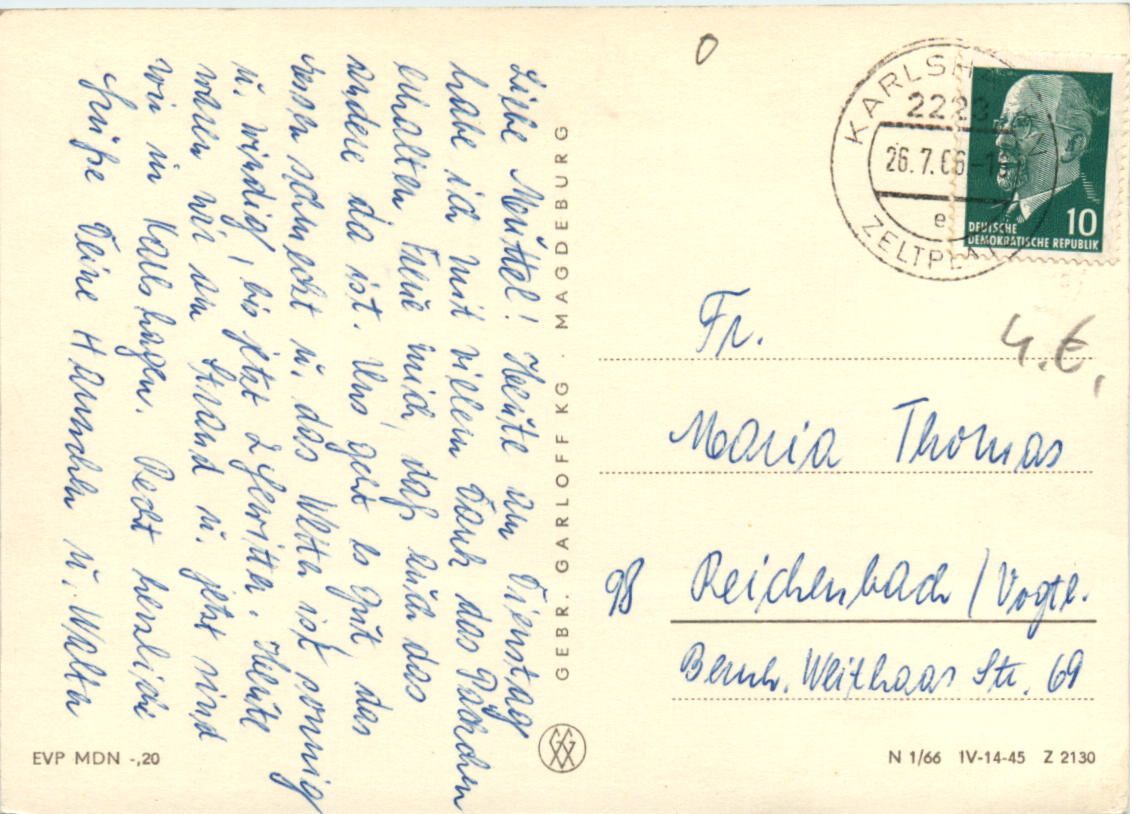 Liebe Muttel! Heute am Dienstag
habe ich mit vielem Dank das Päckchen
erhalten. Freue mich, daß auch das
andere da ist. Uns geht es gut das
Essen schmeckt u. das Wetter ist sonnig
u. windig, bis jetzt 2 Gewitter. Heute
waren wir am Strand u. jetzt sind
wir in Karlshagen. Recht herzliche
Grüße Deine Hannchen u. Walter
GEBR. GARLOFF KG · MAGDEBURG
0
KARLSH
222
26.7.66-1
e
ZELTPLA
10
DEUTSCHE
DEMOKRATISCHE REPUBLIK
4.€,
Fr.
Maria Thomas
98 Reichenbach / Vogtl.
Bernh. Weithaas Str. 69
EVP MDN -,20
N 1/66 IV-14-45 Z 2130